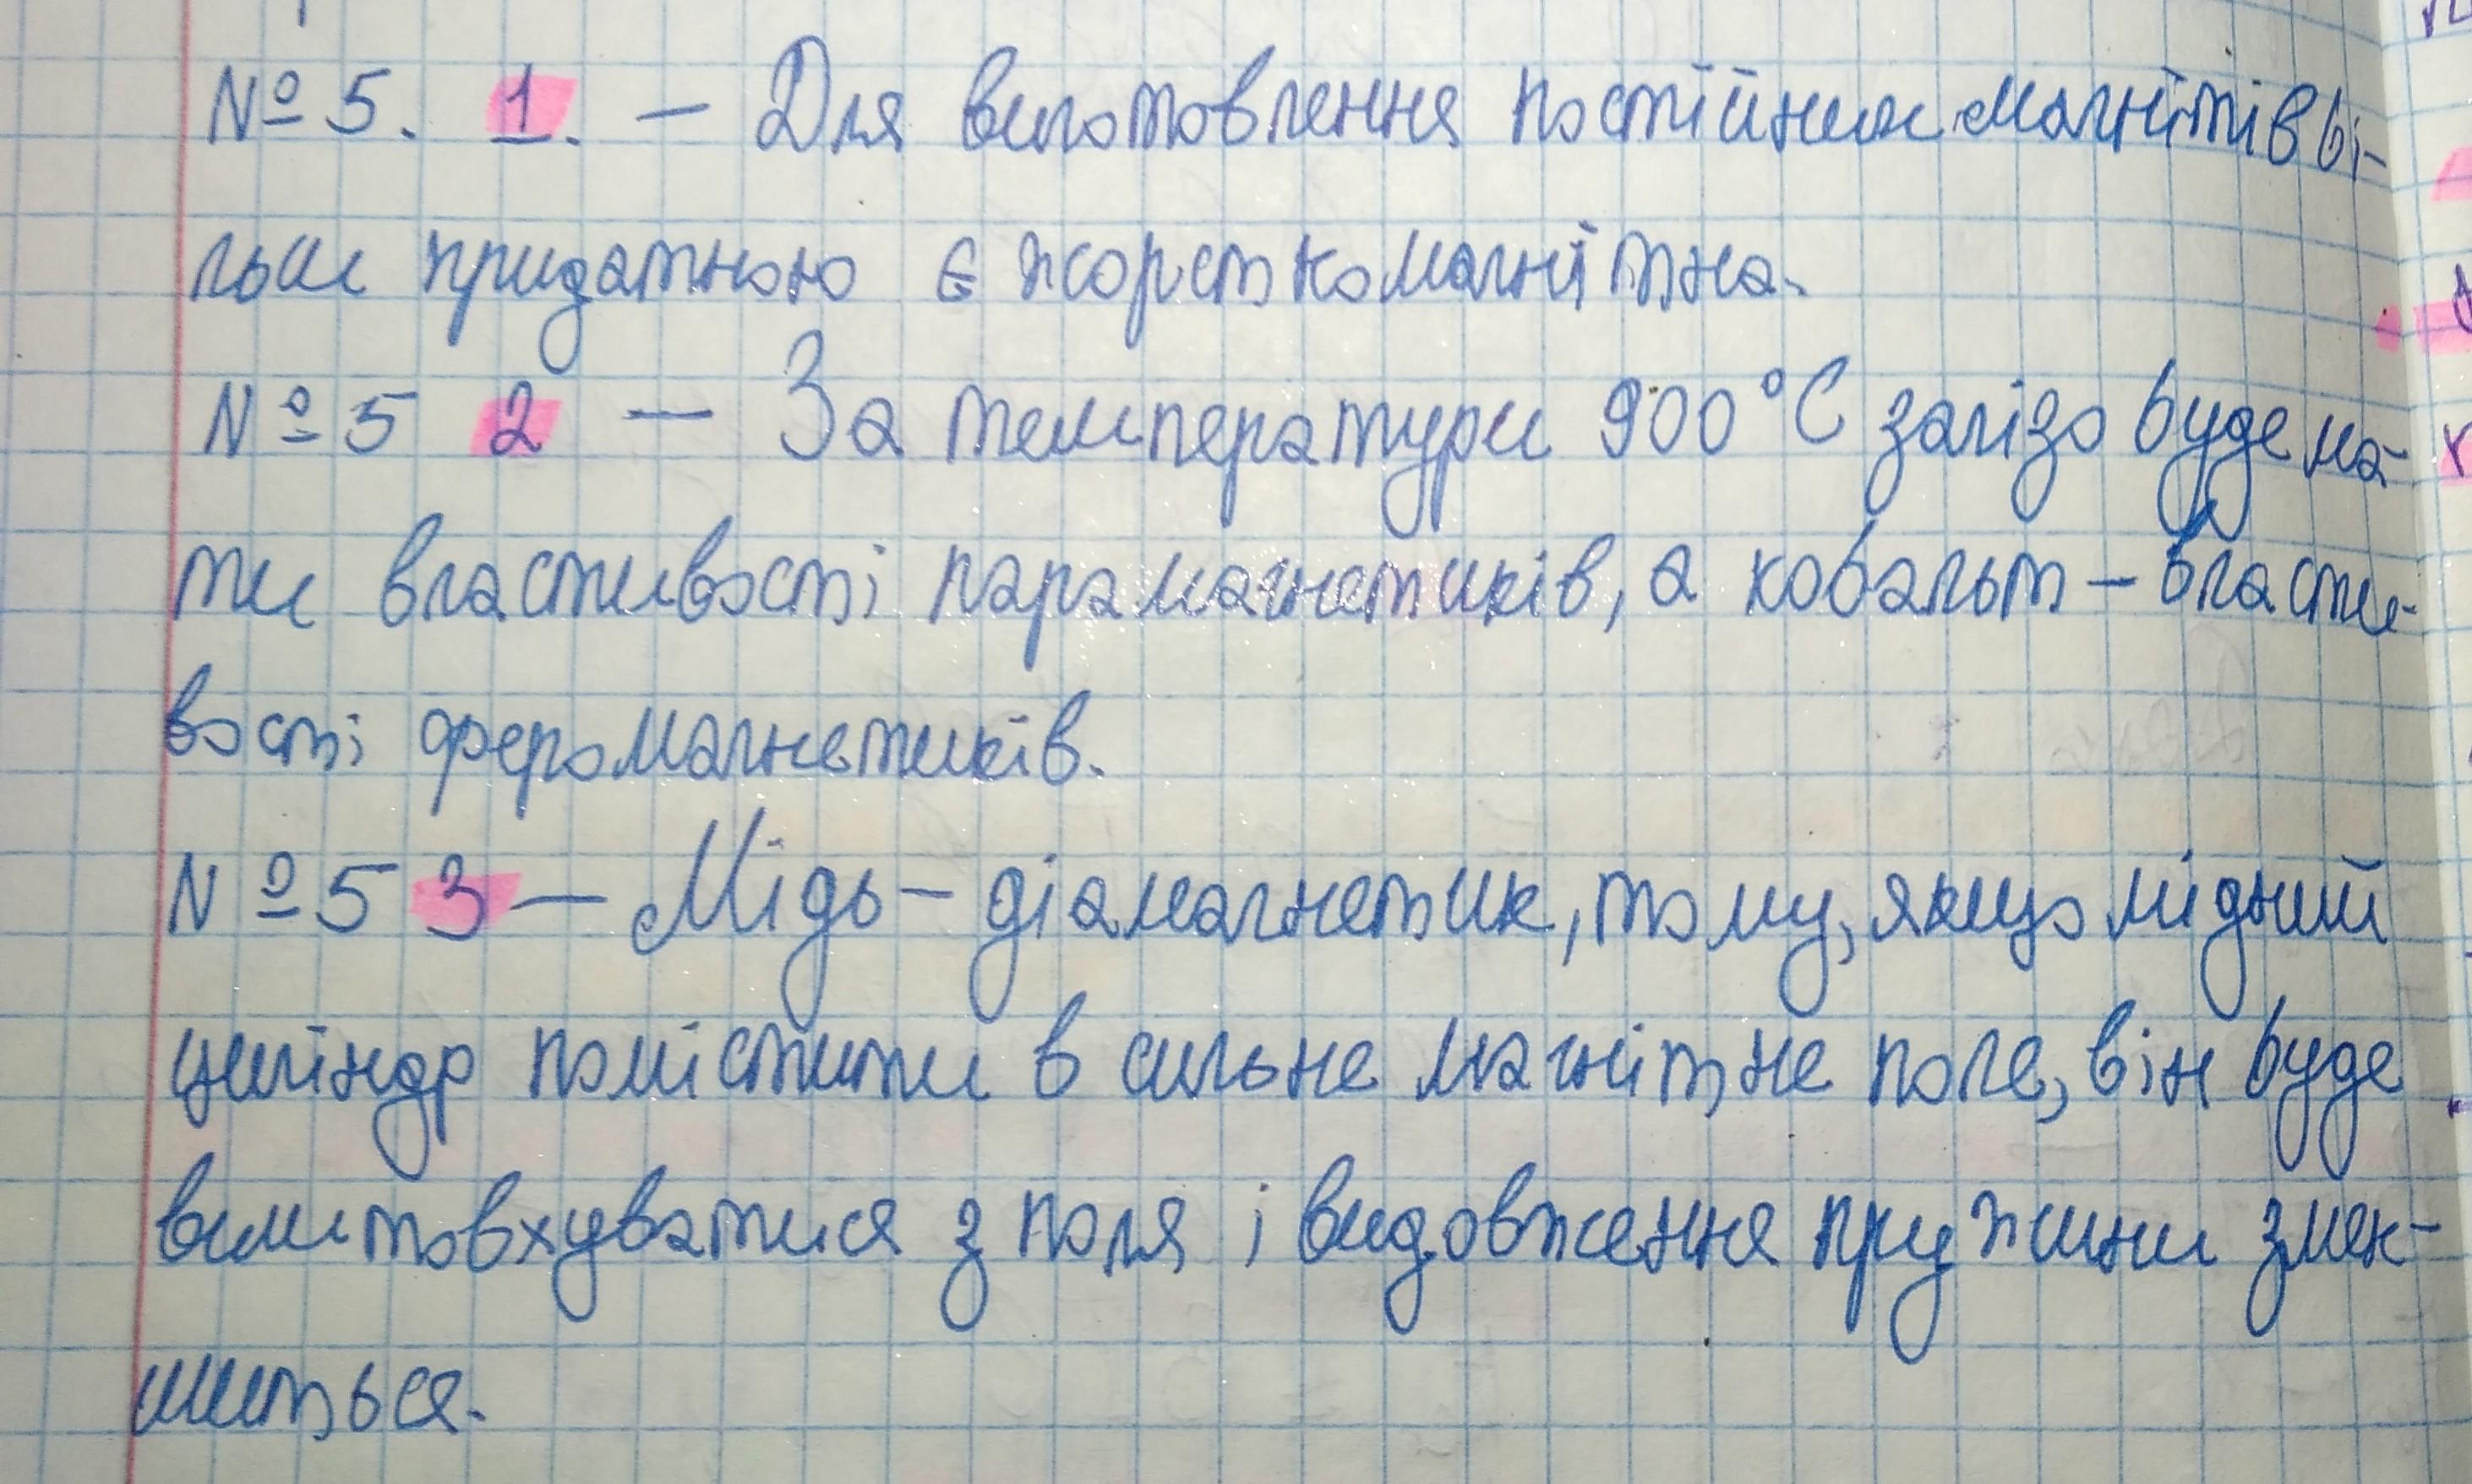 № 5. 1. — Для виготовлення постійних магнітів бі-
льш придатною є жорсткомагнітна.
№ 5 2 — За температури 900°С залізо буде ма-
ти властивості парамагнетиків, а кобальт — власти-
вості феромагнетиків.
№ 5 3 — Мідь — діамагнетик, тому, якщо мідний
циліндр помістити в сильне магнітне поле, він буде
виштовхуватися з поля і видовження пружини змен-
шиться.